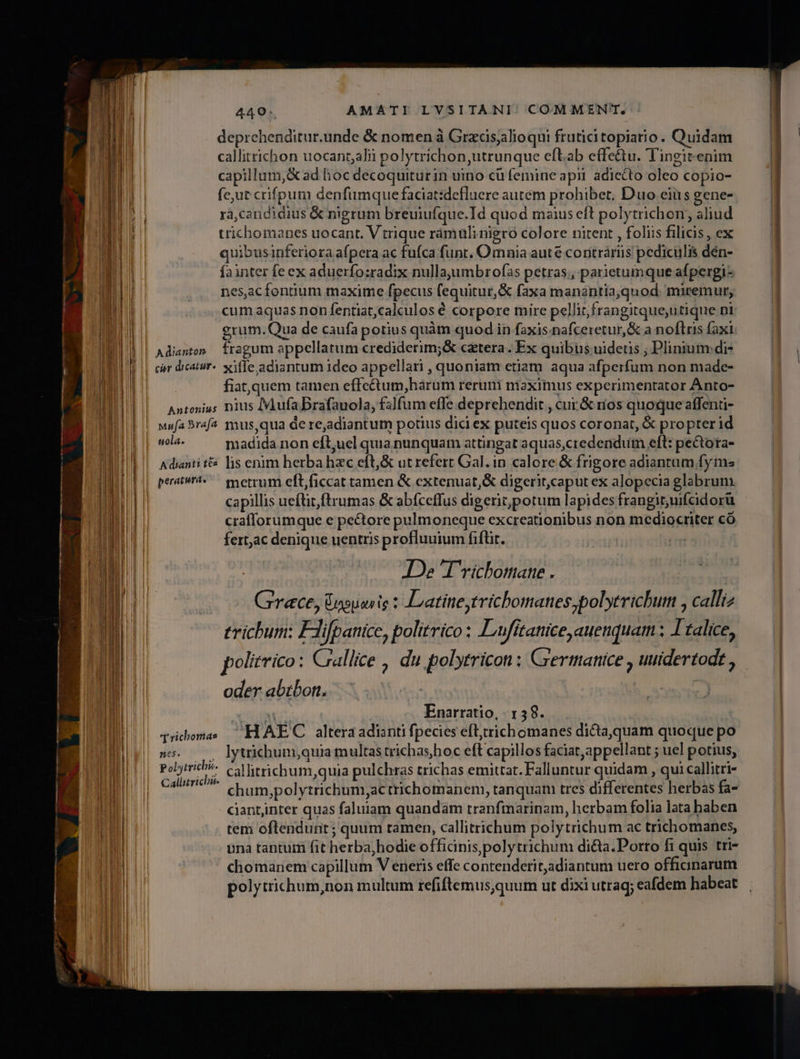 440. AMATI LVSITANI COMMENT.
deprehenditur.unde & nomen à Græcis,alioqui frutici topiario. Quidam
callitrichon uocant,alii polytrichon,utrunque eſt ab effectu. Tingit enim
capillum,& ad hoc decoquitur in uino cũ ſemine apii adiecto oleo copio-
ſe,ut criſpum denſumque faciat:defluere autem prohibet. Duo eius gene-
ra,candidius & nigrum breuiuſque.Id quod maius eſt polytrichon, aliud
trichomanes uocant. Vtrique ramuli nigro colore nitent , foliis filicis, ex
quibus inferiora aſpera ac fuſca ſunt. Omnia autẽ contrariis pediculis den-
ſa inter ſe ex aduerſo:radix nulla,umbroſas petras, parietumque aſpergi-
nes,ac fontium maxime ſpecus ſequitur,& ſaxa manantia,quod miremur,
cum aquas non ſentiat,calculos è corpore mire pellit,frangitque,utique ni
grum. Qua de cauſa potius quàm quod in ſaxis naſceretur,& a noſtris ſaxi
Adianton fragum appellatum crediderim;& cætera. Ex quibus uidetis , Plinium di-
cũr dicatur. xiſſe adiantum ideo appellari , quoniam etiam aqua aſperſum non made-
fiat,quem tamen effectum,harum rerum maximus experimentator Anto-
Antonius nius Muſa Braſauola, falſum eſſe deprehendit , cui & nos quoque aſſenti-
Muſa Braſa mus,qua de re,adiantum potius dici ex puteis quos coronat, & propter id
uola. madida non eſt,uel quia nunquam attingat aquas,credendum eſt: pectora-
Adianti tẽ- lis enim herba hæc eſt,& ut refert Gal. in calore & frigore adiantum ſyme
peratura. metrum eſt,ſiccat tamen & extenuat,& digerit,caput ex alopecia glabrum
capillis ueſtit,ſtrumas & abſceſſus digerit,potum lapides frangit,uiſcidorũ
craſſorumque e pectore pulmoneque excreationibus non mediocriter cõ
fert,ac denique uentris profluuium ſiſtit.
De Trichomane.
Græce, : Latine,trichomanes,polytrichum , calli-
trichum: Hiſpanice, politrico: Luſitanice,auenquam: Italice,
politrico: Gallice , du polytricon: Germanice , uuidertodt ,
oder abtbon.
Enarratio, 138.
Trichoma- HAEC altera adianti ſpecies eſt,trichomanes dicta,quam quoque po
nes. lytrichum,quia multas trichas,hoc eſt capillos faciat,appellant ; uel potius,
Polytrichũ. callitrichum,quia pulchras trichas emittat. Falluntur quidam , qui callitri-
Callitrichũ. chum,polytrichum,ac trichomanem, tanquam tres differentes herbas fa-
ciant,inter quas ſaluiam quandam tranſmarinam, herbam folia lata haben
tem oſtendunt ; quum tamen, callitrichum polytrichum ac trichomanes,
una tantum ſit herba,hodie officinis,polytrichum dicta.Porro ſi quis tri-
chomanem capillum Veneris eſſe contenderit,adiantum uero officinarum
polytrichum,non multum reſiſtemus,quum ut dixi utraq; eaſdem habeat